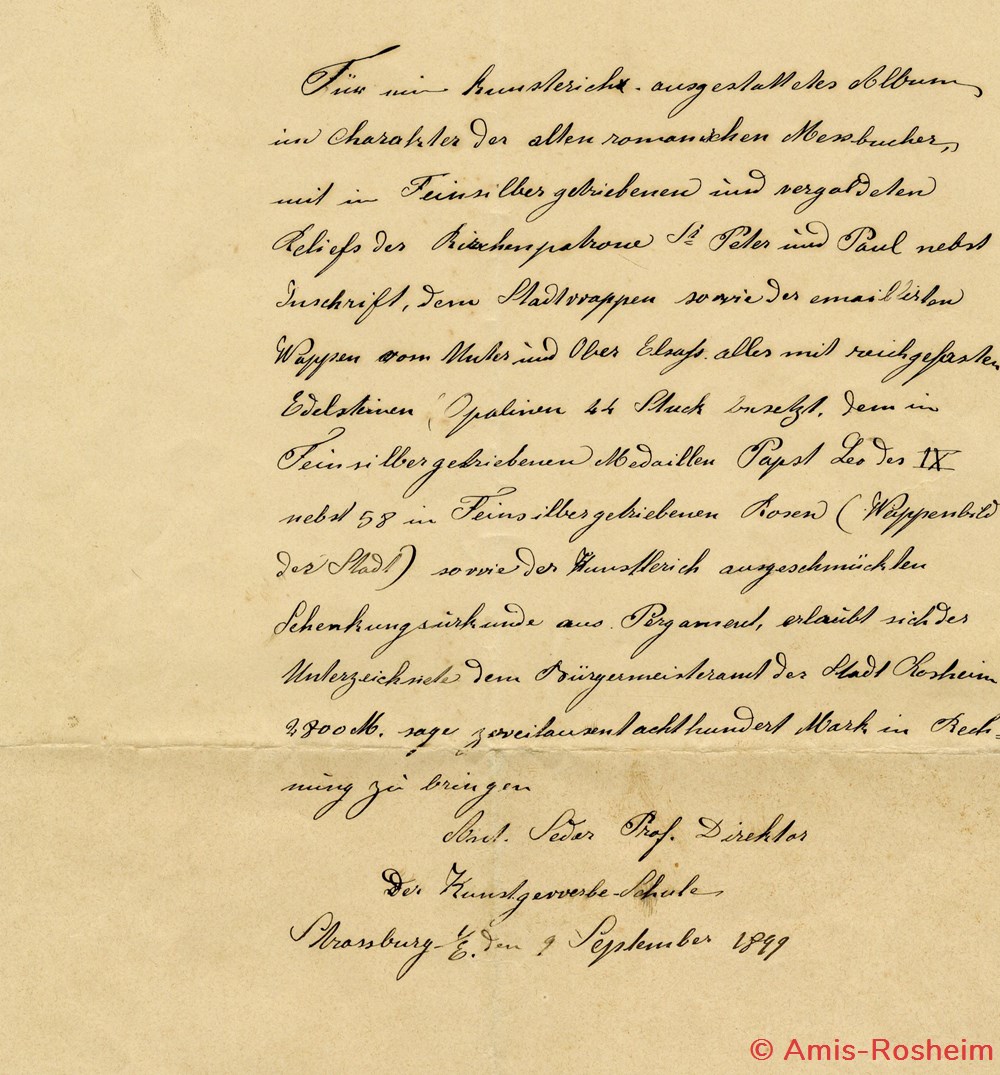 Für ein Kunstreich ausgestattetes Album
im Charakter der alten romanischen Messbucher,
mit in Feinsilber getriebenen und vergoldeten
Reliefs der Kirchenpatrone St Peter und Paul nebst
Inschrift, dem Stadtwappen sowie der emaillirten
Wappen vom Unter und Ober Elsass. alles mit reichgefassten
Edelsteinen (Opalinen 44 Stuck besetzt, dem in
Feinsilber getriebenen Medaillen Papst Leo des IX
nebst 58 in Feinsilber getriebenen Rosen (Wappenbild
der Stadt) sowie der Kunstlerich ausgeschmückten
Schenkungsurkunde aus Pergament, erlaubt sich der
Unterzeichnete dem Bürgermeisteramt der Stadt Rosheim
2800 M. sage zweitausent achthundert Mark in Rech=
nung zu bringen
Ant. Seder Prof. Direktor
Der Kunstgewerbe-Schule
Strassburg i/E. den 9 September 1899
© Amis-Rosheim